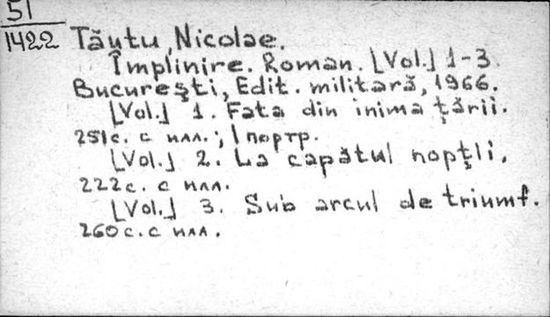 51
1422
Tăutu, Nicolae.
Împlinire. Roman. [Vol.] 1-3.
Bucureşti, Edit. militară, 1966.
[Vol.] 1. Fata din inima ţării.
251с. с илл.; 1 портр.
[Vol.] 2. La capătul nopţli.
222с. с илл.
[Vol.] 3. Sub arcul de triumf.
260с. с илл.